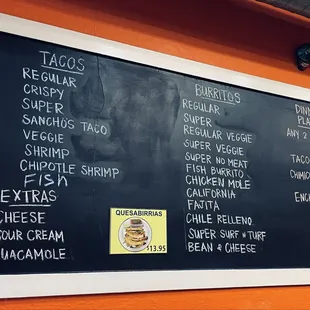 TACOS
REGULAR
CRISPY
SUPER
SANCHO'S TACO
VEGGIE
SHRIMP
CHIPOTLE SHRIMP
FISH
EXTRAS
CHEESE
SOUR CREAM
GUACAMOLE
QUESABIRRIAS
$13.95
BURRITOS
REGULAR
SUPER
REGULAR VEGGIE
SUPER VEGGIE
SUPER NO MEAT
FISH BURRITO
CHICKEN MOLE
CALIFORNIA
FAJITA
CHILE RELLENO
SUPER SURF N' TURF
BEAN & CHEESE
DINN
PLA
ANY 2
TACO
CHIMIC
ENC